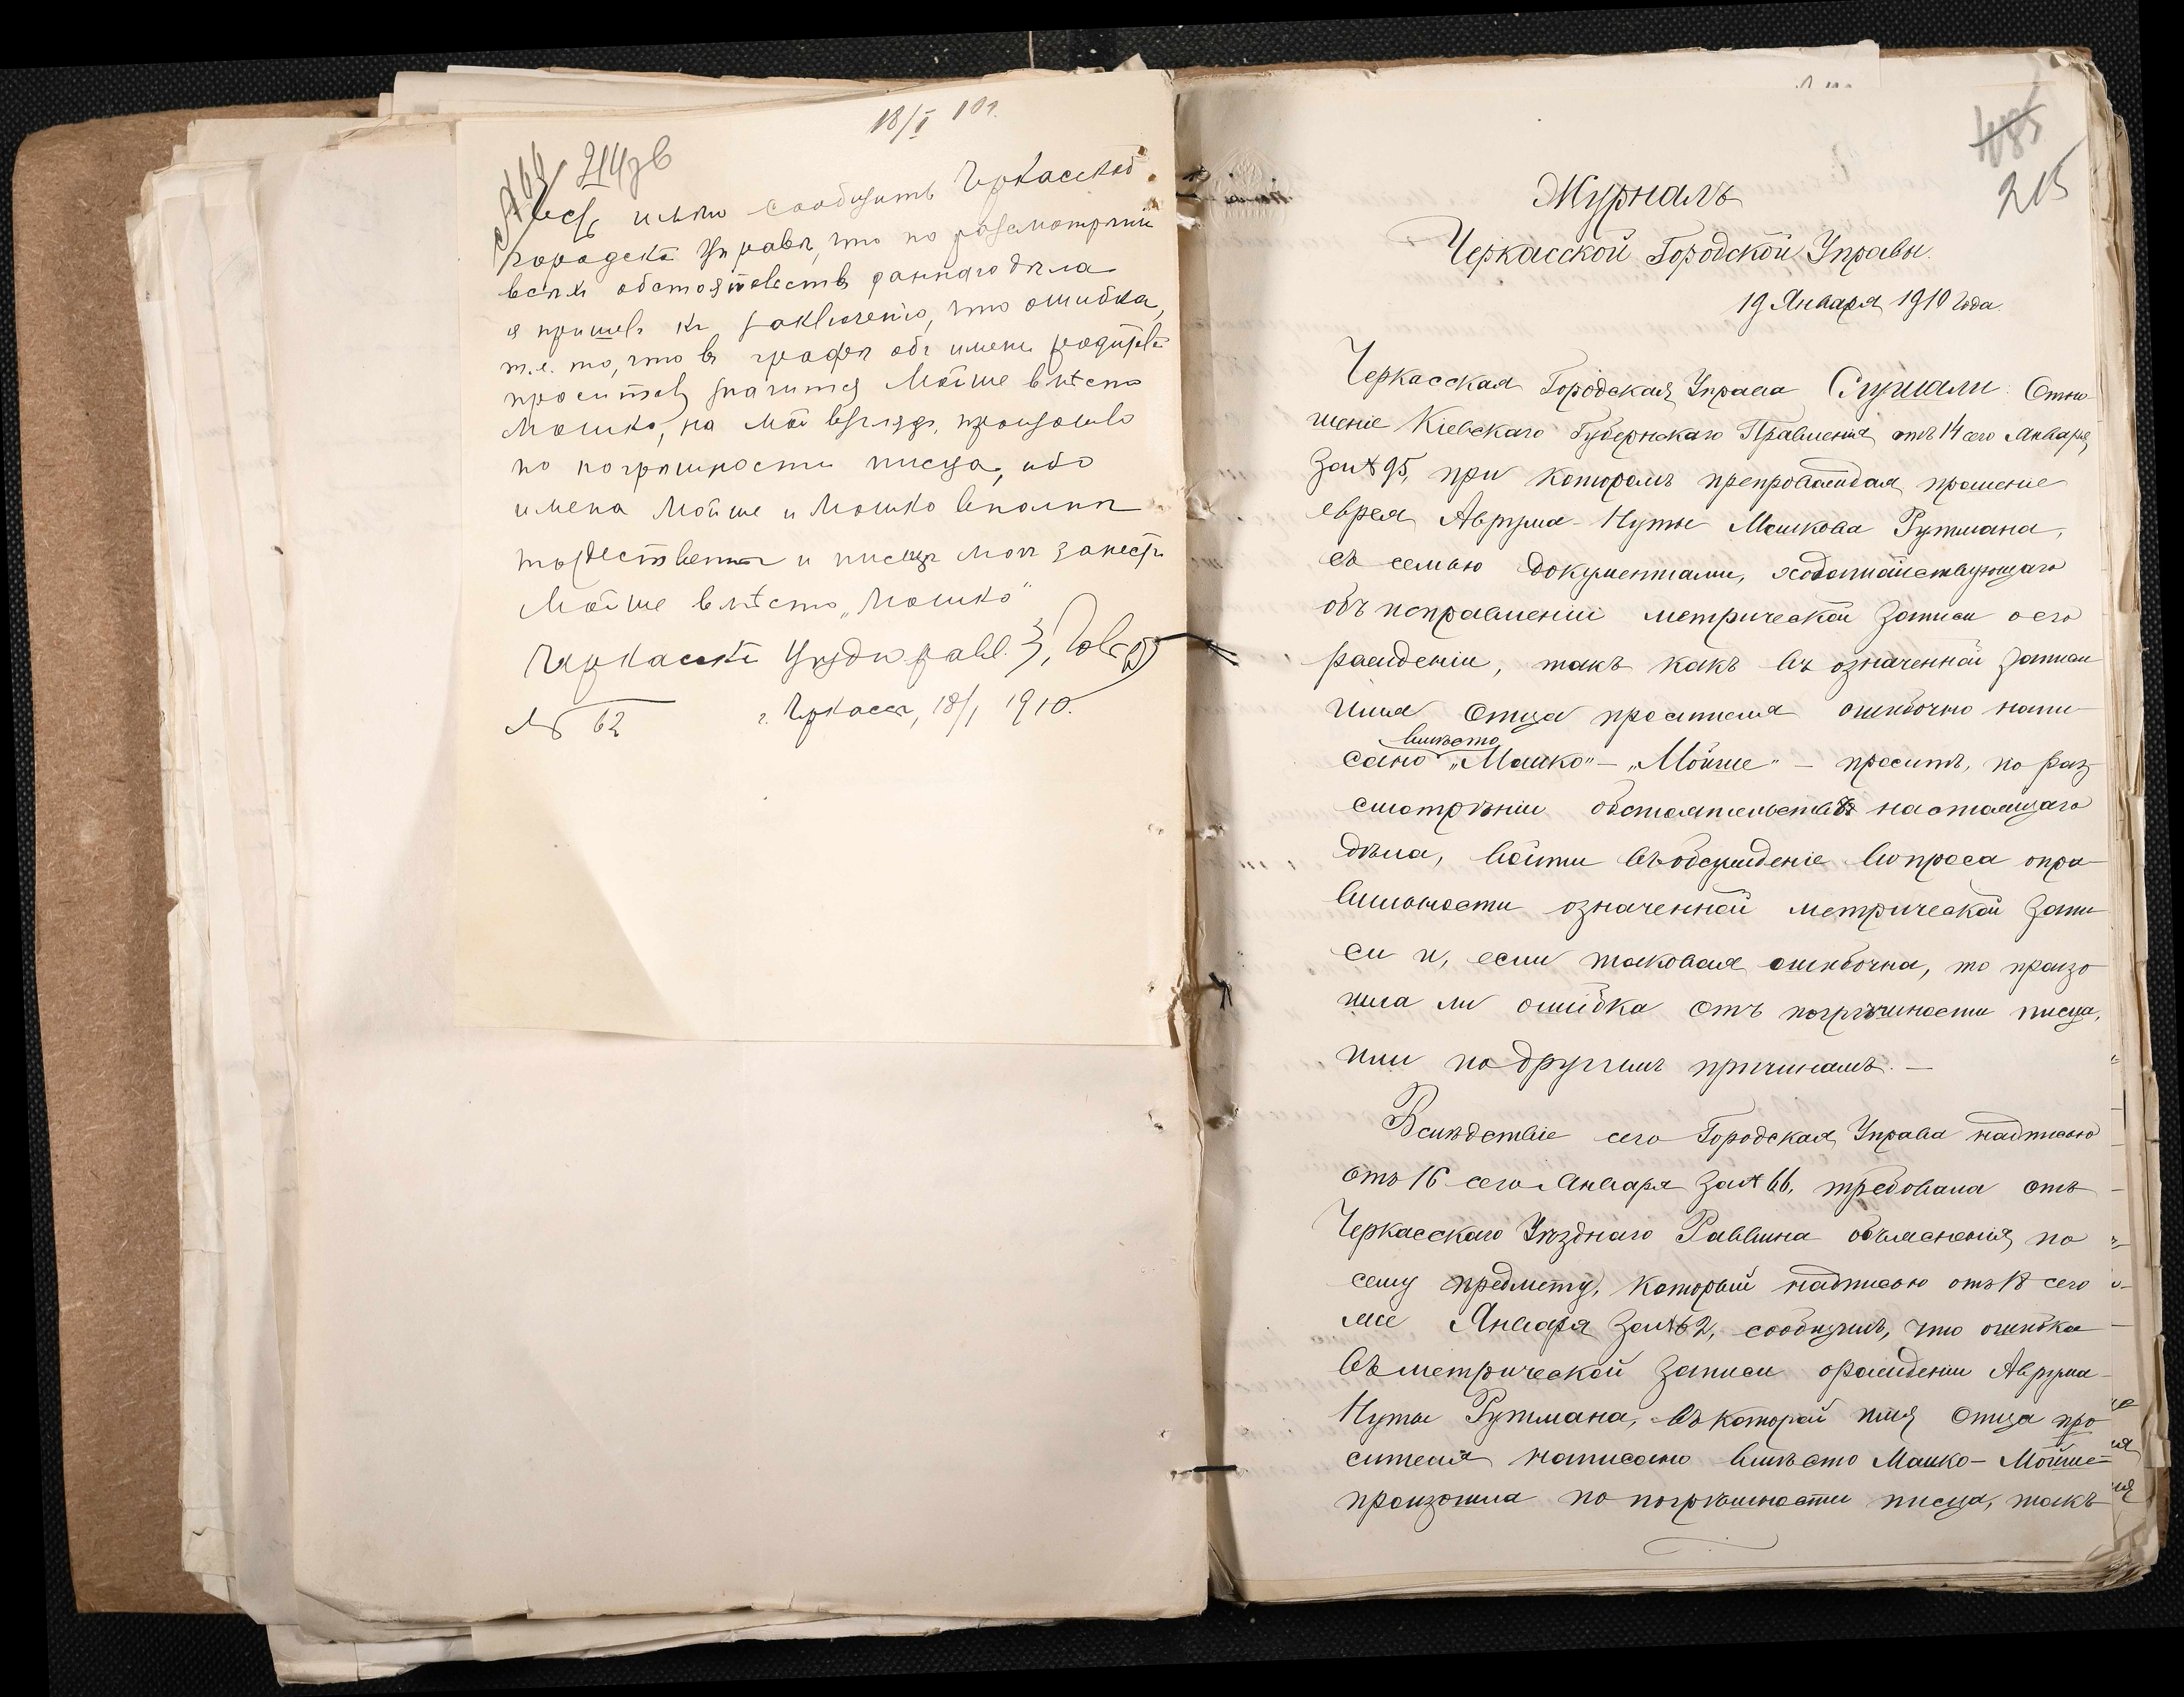 18/I 10г.
№ 64 214зв
Честь имѣю сообщить Черкасской
городской Управѣ, что по разсмотрѣнiи
всѣхъ обстоятельствъ даннаго дѣла
я пришелъ къ заключенiю, что ошибка,
т.е. то, что въ графѣ объ имени родителя
просителя значится Мойше вмѣсто
Мошко, на мой взглядъ, произошло
по погрѣшности писца, ибо
имена Мойше и Мошко вполнѣ
тождественны и писецъ могъ занести
Мойше вмѣсто „Мошко"
Черкасскiй Уѣздн. равв.
№ 62 г. Черкассы, 18/I 1910.
485
215
Журналъ
Черкасской Городской Управы.
19 Января 1910 года.
Черкасская Городская Управа Слушали: Отно-
шенiе Кiевскаго Губернскаго Правленiя отъ 14 сего Января,
за № 95, при которомъ препровождая прошенiе
еврея Аврума-Нуты Мошкова Рутмана,
съ семью документами, ходатайствующаго
объ исправленiи метрической записи о его
рожденiи, такъ какъ въ означенной записи
имя отца просителя ошибочно напи-
вмѣсто
сано „Мошко" – „Мойше" – проситъ, по раз-
смотрѣнiи обстоятельствъ настоящаго
дѣла, войти въ обсужденiе вопроса о пра-
вильности означенной метрической запи-
си и, если таковая ошибочна, то произо-
шла ли ошибка отъ погрѣшности писца,
или по другимъ причинамъ. –
Вслѣдствiе сего Городская Управа надписью
отъ 16 сего Января за № 66, требовала отъ
Черкасскаго Уѣзднаго Раввина объясненiя по
сему предмету, который надписью отъ 18 сего
же Января за № 62, сообщилъ, что ошибка
въ метрической записи о рожденiи Аврума-
Нуты Рутмана, въ которой имя отца про-
сителя написано вмѣсто Мошко – Мойше –
произошла по погрѣшности писца, такъ